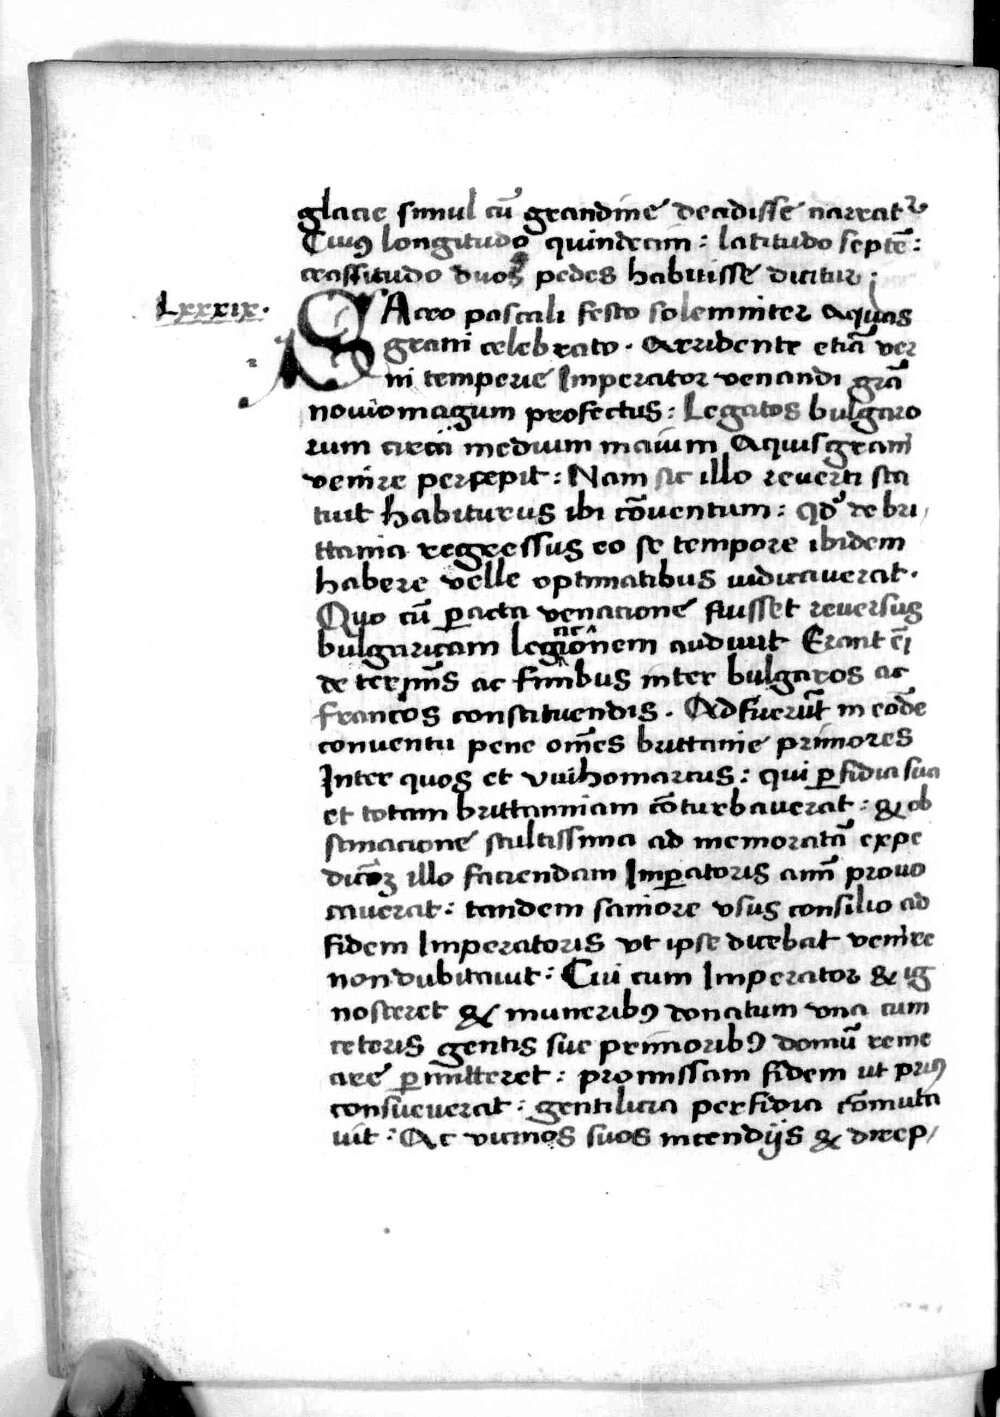 glacie simul cū grandine decidisse narrat᷑
Cuiꝯ longitudo quindecim : latitudo septē :
crassitudo duoꝝ pedes habuisse dicitur ;
Lxxxix. SAcro pascali festo solemniter aquas
grani celebrato . Arridente etiā ver
ni temperie Imperator venandi grā
noviomagum profectus : Legatos bulgaro
rum circa medium maium Aquisgrani
venire percepit : Nam sic illo reverti sta
tuit habiturus ibi cōventum : qđ de bri/
ttania regressus eo se tempore ibidem
habere velle optimatibus indicaverat .
Quo cū ꝑacta venacione fuisset reversus
bulgaricam legacionem audivit Erant eī
de terminis ac finibus inter bulgaros ac
francos constituendis . Adfuerūt in eodē
conventu pene om̄es brittanie primores
Inter quos et vvihomarcus : qui ꝑfidia sua
et totam brittanniam cōturbaverat : & ob
stinacione stultissima ad memoratā expe
dicōꝫ illo faciendam Imꝑatoris anim̄ provo
caverat : tandem saniore usus consilio ad
fidem Imperatoris vt ipse dicebat venire
non dubitavit : Cui cum Imperator & ig
nosceret & muneribꝯ donatum vna cum
ceteris gentis sue primoribꝯ domū reme
are ꝑmitteret : promissam fidem ut priꝯ
consueverat : gentilicia perfidia cōmuta
vit : Ac vicinos suos incendijs & direp/